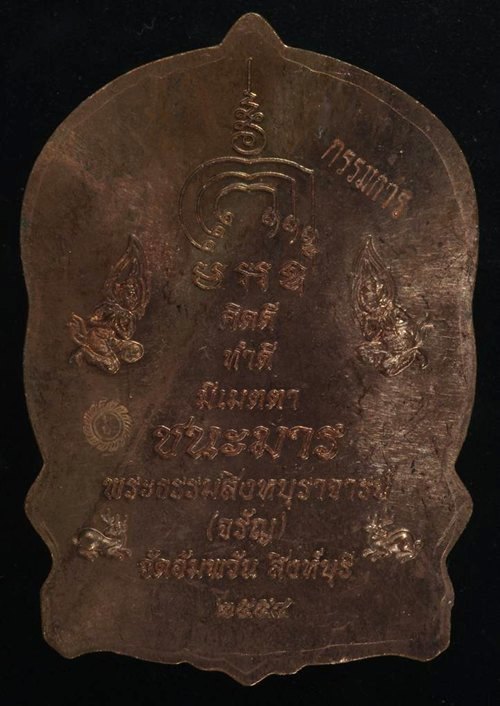 กรรมการ
คิดดี
ทำดี
มีเมตตา
ชนะมาร
พระธรรมสิงหบุราจารย์
(จรัญ)
วัดอัมพวัน สิงห์บุรี
๒๕๕๔